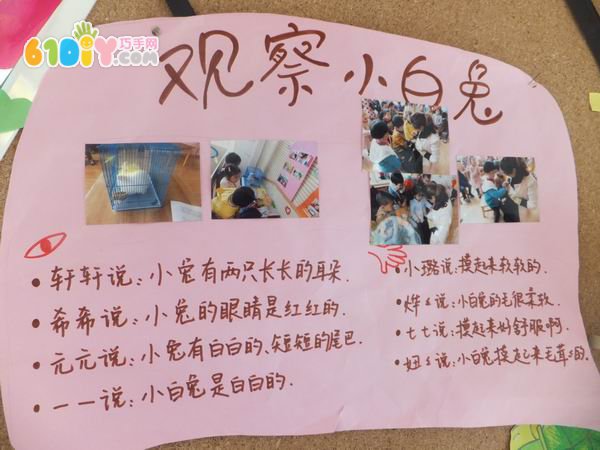 61DIY巧手网
.com
观察小白兔
• 轩轩说：小兔有两只长长的耳朵.
• 希希说：小兔的眼睛是红红的.
• 元元说：小兔有白白的、短短的尾巴
• 一一说：小白兔是白白的.
• 小璐说：摸起来软软的.
• 烨々说：小白兔的毛很柔软.
• 七七说：摸起来好舒服啊.
• 妞々说：小白兔摸起来毛茸々的.